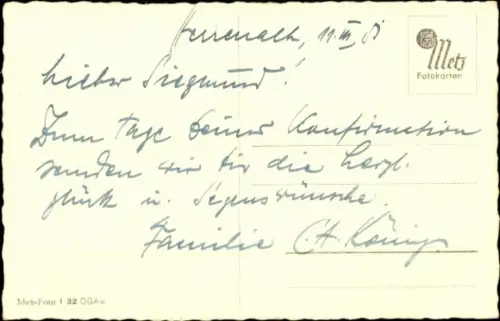 Herrenalb, 11. III. 51
Metz
Fotokarten
Lieber Siegmund!
Zum Tage Deiner Konfirmation
senden wir Dir die herzl.
Glück u. Segenswünsche.
Familie Ch. König
Metz-Foto 1 32